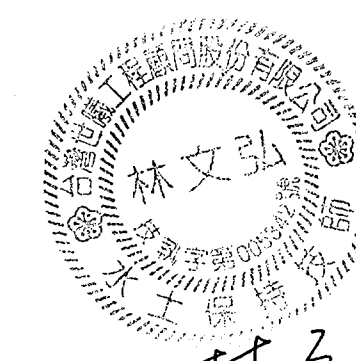 台灣世曦工程顧問股份有限公司
林文弘
技執字第005542號
水土保持技師
林